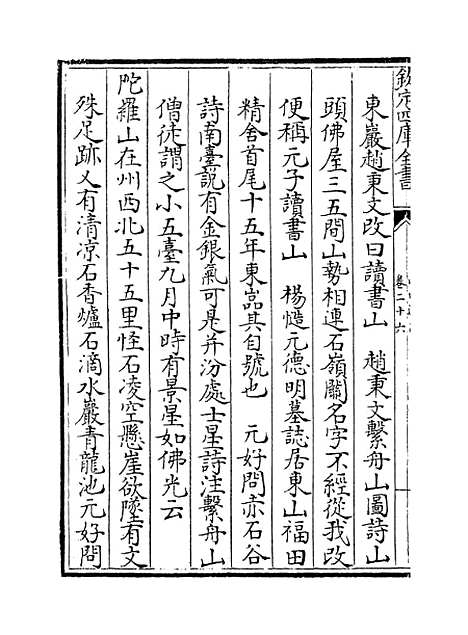 欽定四庫全書
卷二十六
東巖趙秉文改曰讀書山　趙秉文繫舟山圖詩山
頭佛屋三五間山勢相連石嶺關名字不經從我改
便稱元子讀書山　楊慥元德明墓誌居東山福田
精舍首尾十五年東嵓其自號也　元好問赤石谷
詩南臺說有金銀氣可是并汾處士星詩注繫舟山
僧徒謂之小五臺九月中時有景星如佛光云
陀羅山在州西北五十五里怪石凌空懸崖欲墜有文
殊足跡又有清凉石香爐石滴水巖青龍池元好問